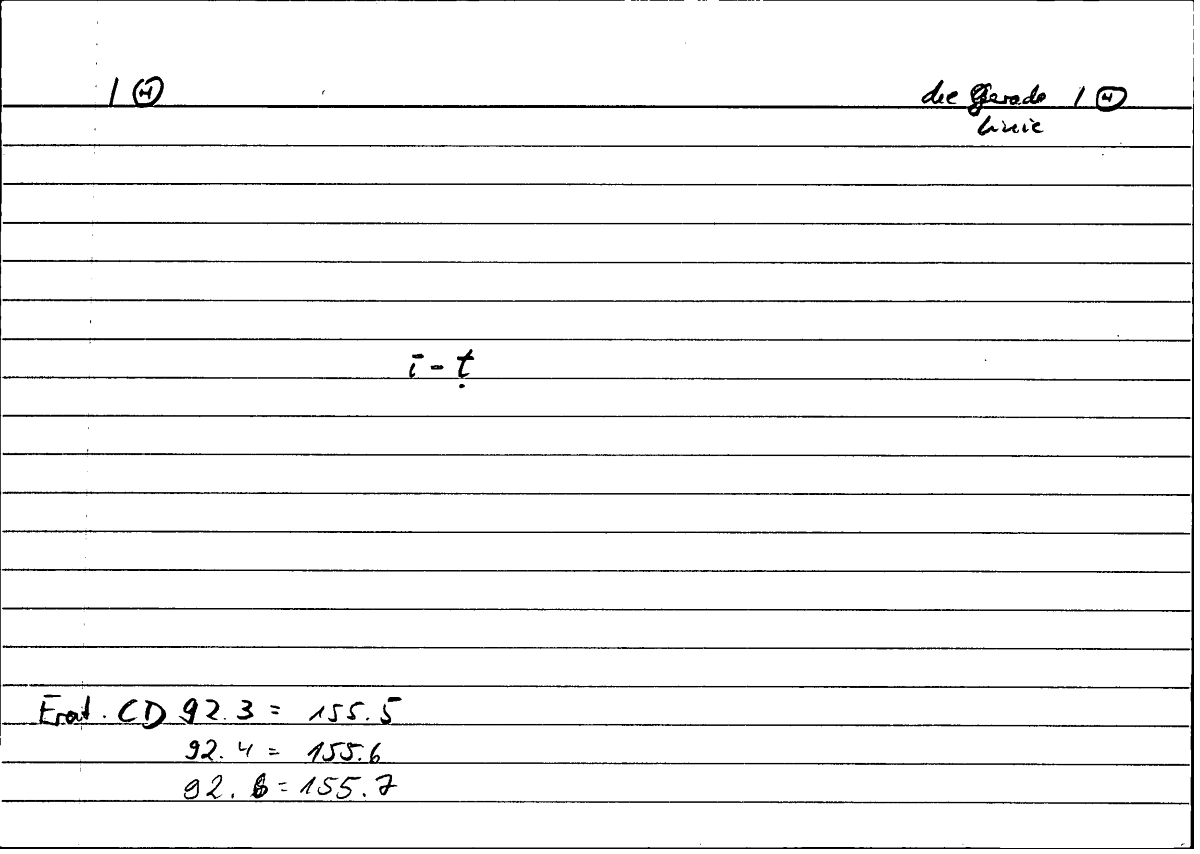 1 ④ die Gerade 1 ④
Linie
ī - ṭ
Erat. CD 92.3 = 155.5
92.4 = 155.6
92.6 = 155.7